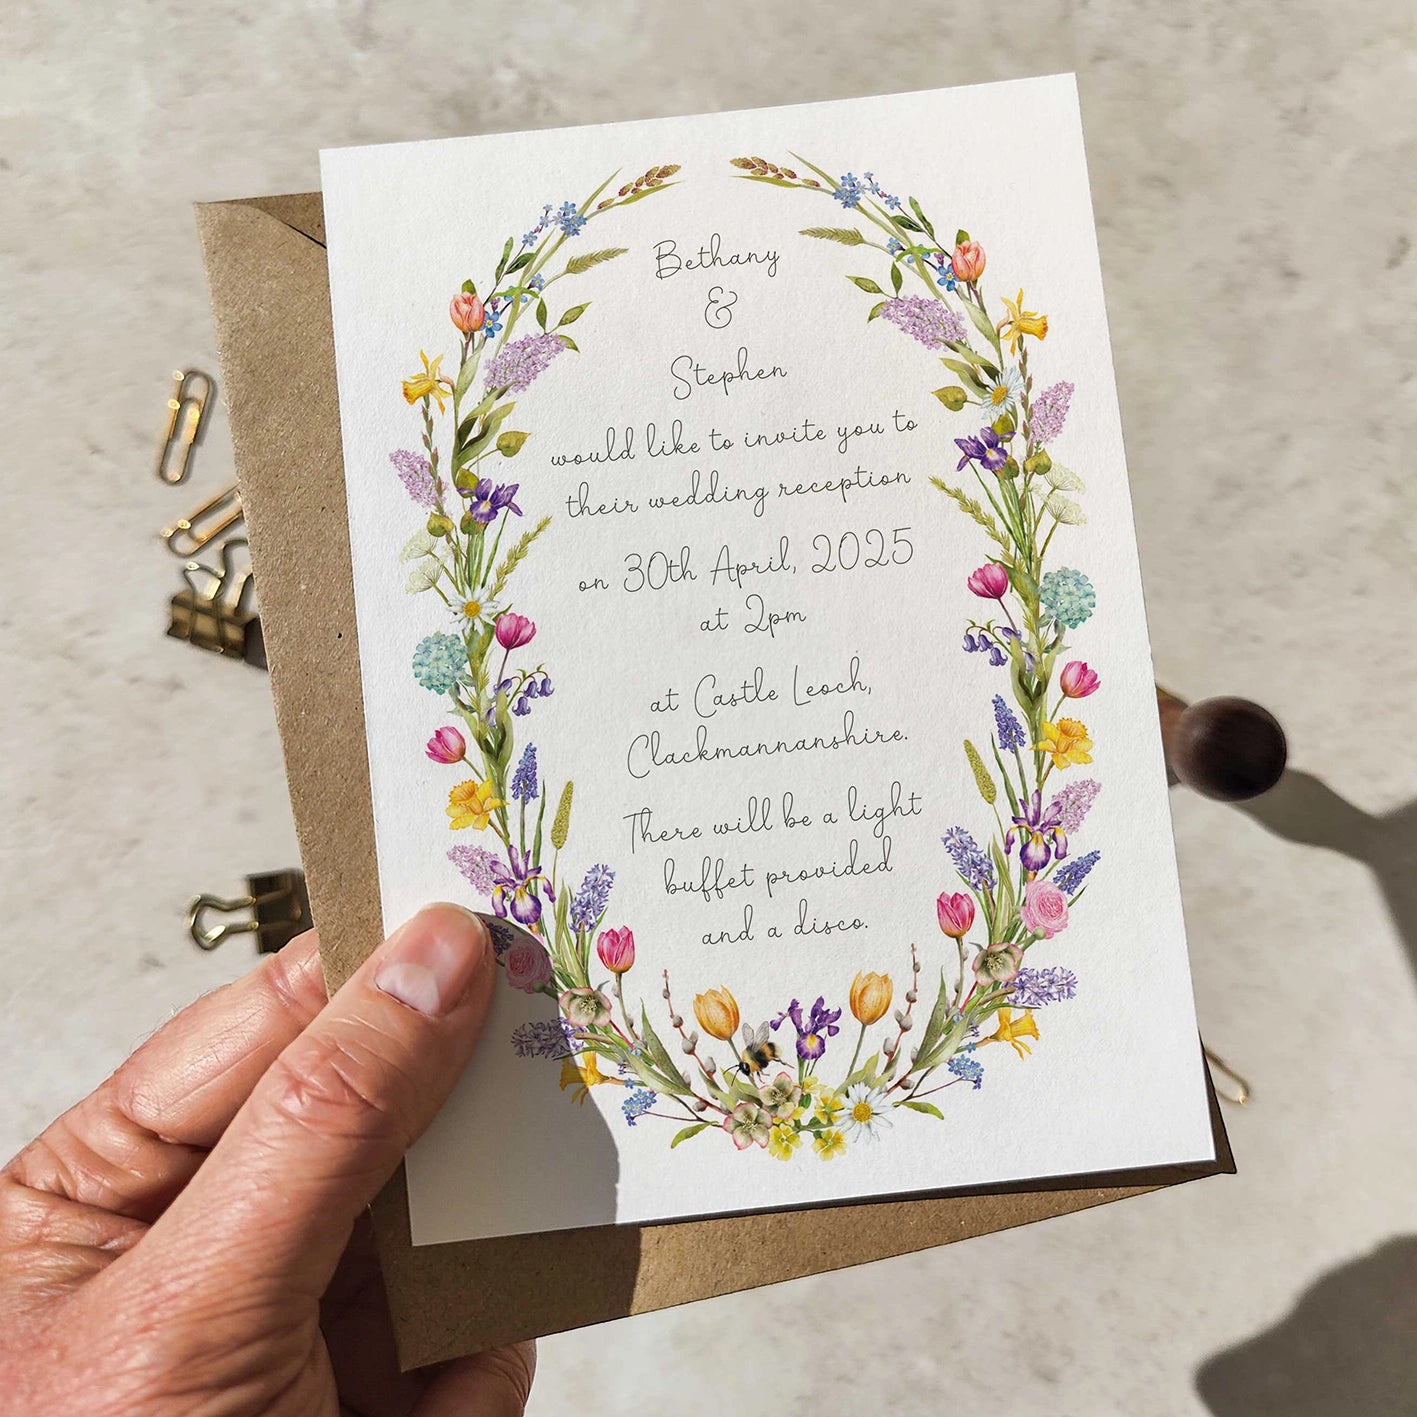 Bethany
&
Stephen
would like to invite you to
their wedding reception
on 30th April, 2025
at 2pm
at Castle Leoch,
Clackmannanshire.
There will be a light
buffet provided
and a disco.